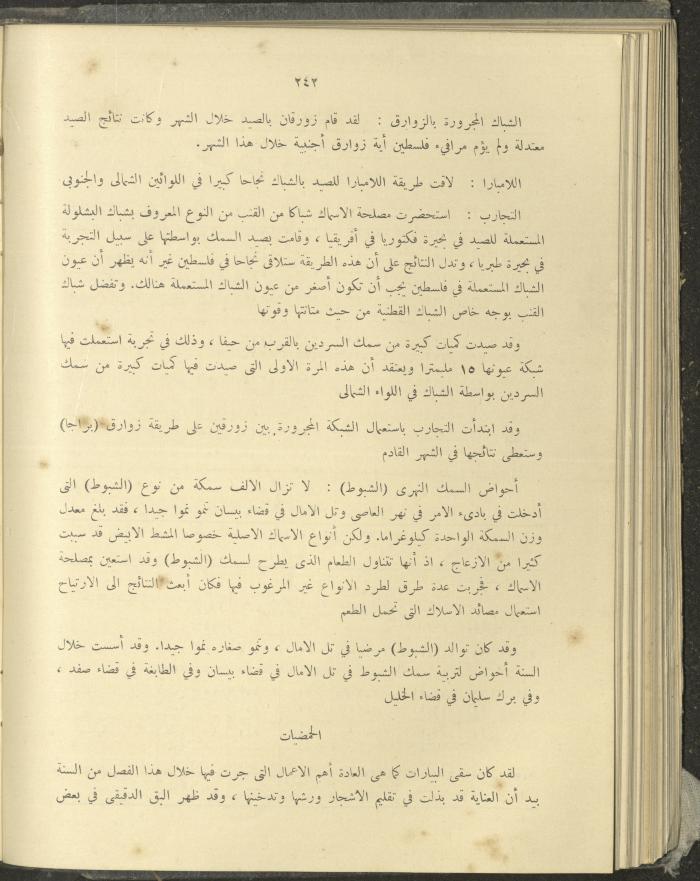 ٢٤٣
الشباك المجرورة بالزوارق : لقد قام زورقان بالصيد خلال الشهر وكانت نتائج الصيد
معتدلة ولم يؤم مرافىء فلسطين أية زوارق أجنبية خلال هذا الشهر.
اللامبارا : لاقت طريقة اللامبارا للصيد بالشباك نجاحا كبيرا في اللوائين الشمالى والجنوبى
التجارب : استحضرت مصلحة الاسماك شباكا من القنب من النوع المعروف بشباك البشلولة
المستعملة للصيد في بحيرة فكتوريا في أفريقيا ، وقامت بصيد السمك بواسطتها على سبيل التجربة
في بحيرة طبريا ، وتدل النتائج على أن هذه الطريقة ستلاقى نجاحا في فلسطين غير أنه يظهر أن عيون
الشباك المستعملة في فلسطين يجب أن تكون أصغر من عيون الشباك المستعملة هنالك. وتفضل شباك
القنب بوجه خاص الشباك القطنية من حيث متانتها وقوتها
وقد صيدت كميات كبيرة من سمك السردين بالقرب من حيفا ، وذلك في تجربة استعملت فيها
شبكة عيونها ١٥ مليمترا ويعتقد أن هذه المرة الاولى التى صيدت فيها كميات كبيرة من سمك
السردين بواسطة الشباك في اللواء الشمالى
وقد ابتدأت التجارب باستعمال الشبكة المجرورة بين زورقين على طريقة زوارق (براجا)
وستعطى نتائجها في الشهر القادم
أحواض السمك النهرى (الشبوط) : لا تزال الالف سمكة من نوع (الشبوط) التى
أدخلت في بادىء الامر في نهر العاصى وتل الامال في قضاء بيسان تنمو نموا جيدا ، فقد بلغ معدل
وزن السمكة الواحدة كيلوغراما. ولكن أنواع الاسماك الاصلية خصوصا المشط الابيض قد سببت
كثيرا من الازعاج ، اذ أنها تتناول الطعام الذى يطرح لسمك (الشبوط) وقد استعين بمصلحة
الاسماك ، فجربت عدة طرق لطرد الانواع غير المرغوب فيها فكان أبعث النتائج الى الارتياح
استعمال مصائد الاسلاك التى تحمل الطعم
وقد كان توالد (الشبوط) مرضيا في تل الامال ، وتنمو صغاره نموا جيدا. وقد أسست خلال
السنة أحواض لتربية سمك الشبوط في تل الامال في قضاء بيسان وفي الطابغة في قضاء صفد ،
وفي برك سليمان في قضاء الخليل
الحمضيات
لقد كان سقى البيارات كما هى العادة أهم الاعمال التى جرت فيها خلال هذا الفصل من السنة
بيد أن العناية قد بذلت في تقليم الاشجار ورشها وتدخينها ، وقد ظهر البق الدقيقى في بعض